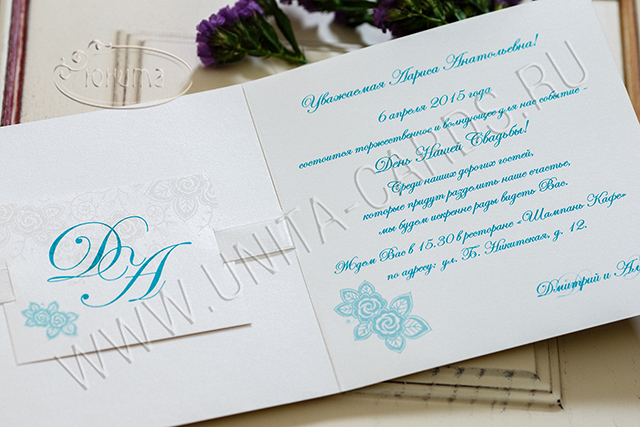 Toruma
ДА
Уважаемая Лариса Анатольевна!
6 апреля 2015 года
состоится торжественное и волнующее для нас событие -
День Нашей Свадьбы!
Среди наших дорогих гостей,
которые придут разделить наше счастье,
мы будем искренне рады видеть Вас.
Ждем Вас в 15.30 в ресторане «Шампань Кафе»
по адресу: ул. Б. Никитская, д. 12.
Дмитрий и
WWW.UNITA-CARDS.RU